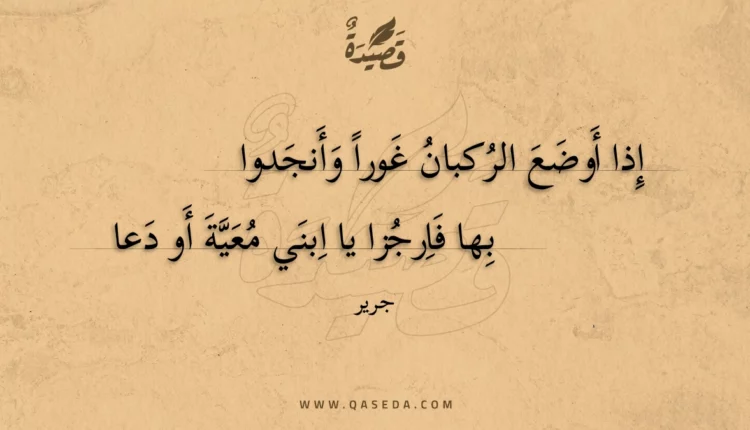 قَصِيدَةٌ
إِذا أَوضَعَ الرُكبانُ غَوراً وَأَنجَدوا
بِها فَاِرجُزا يا اِبنَي مُعَيَّةَ أَو دَعا
جرير
WWW.QASEDA.COM